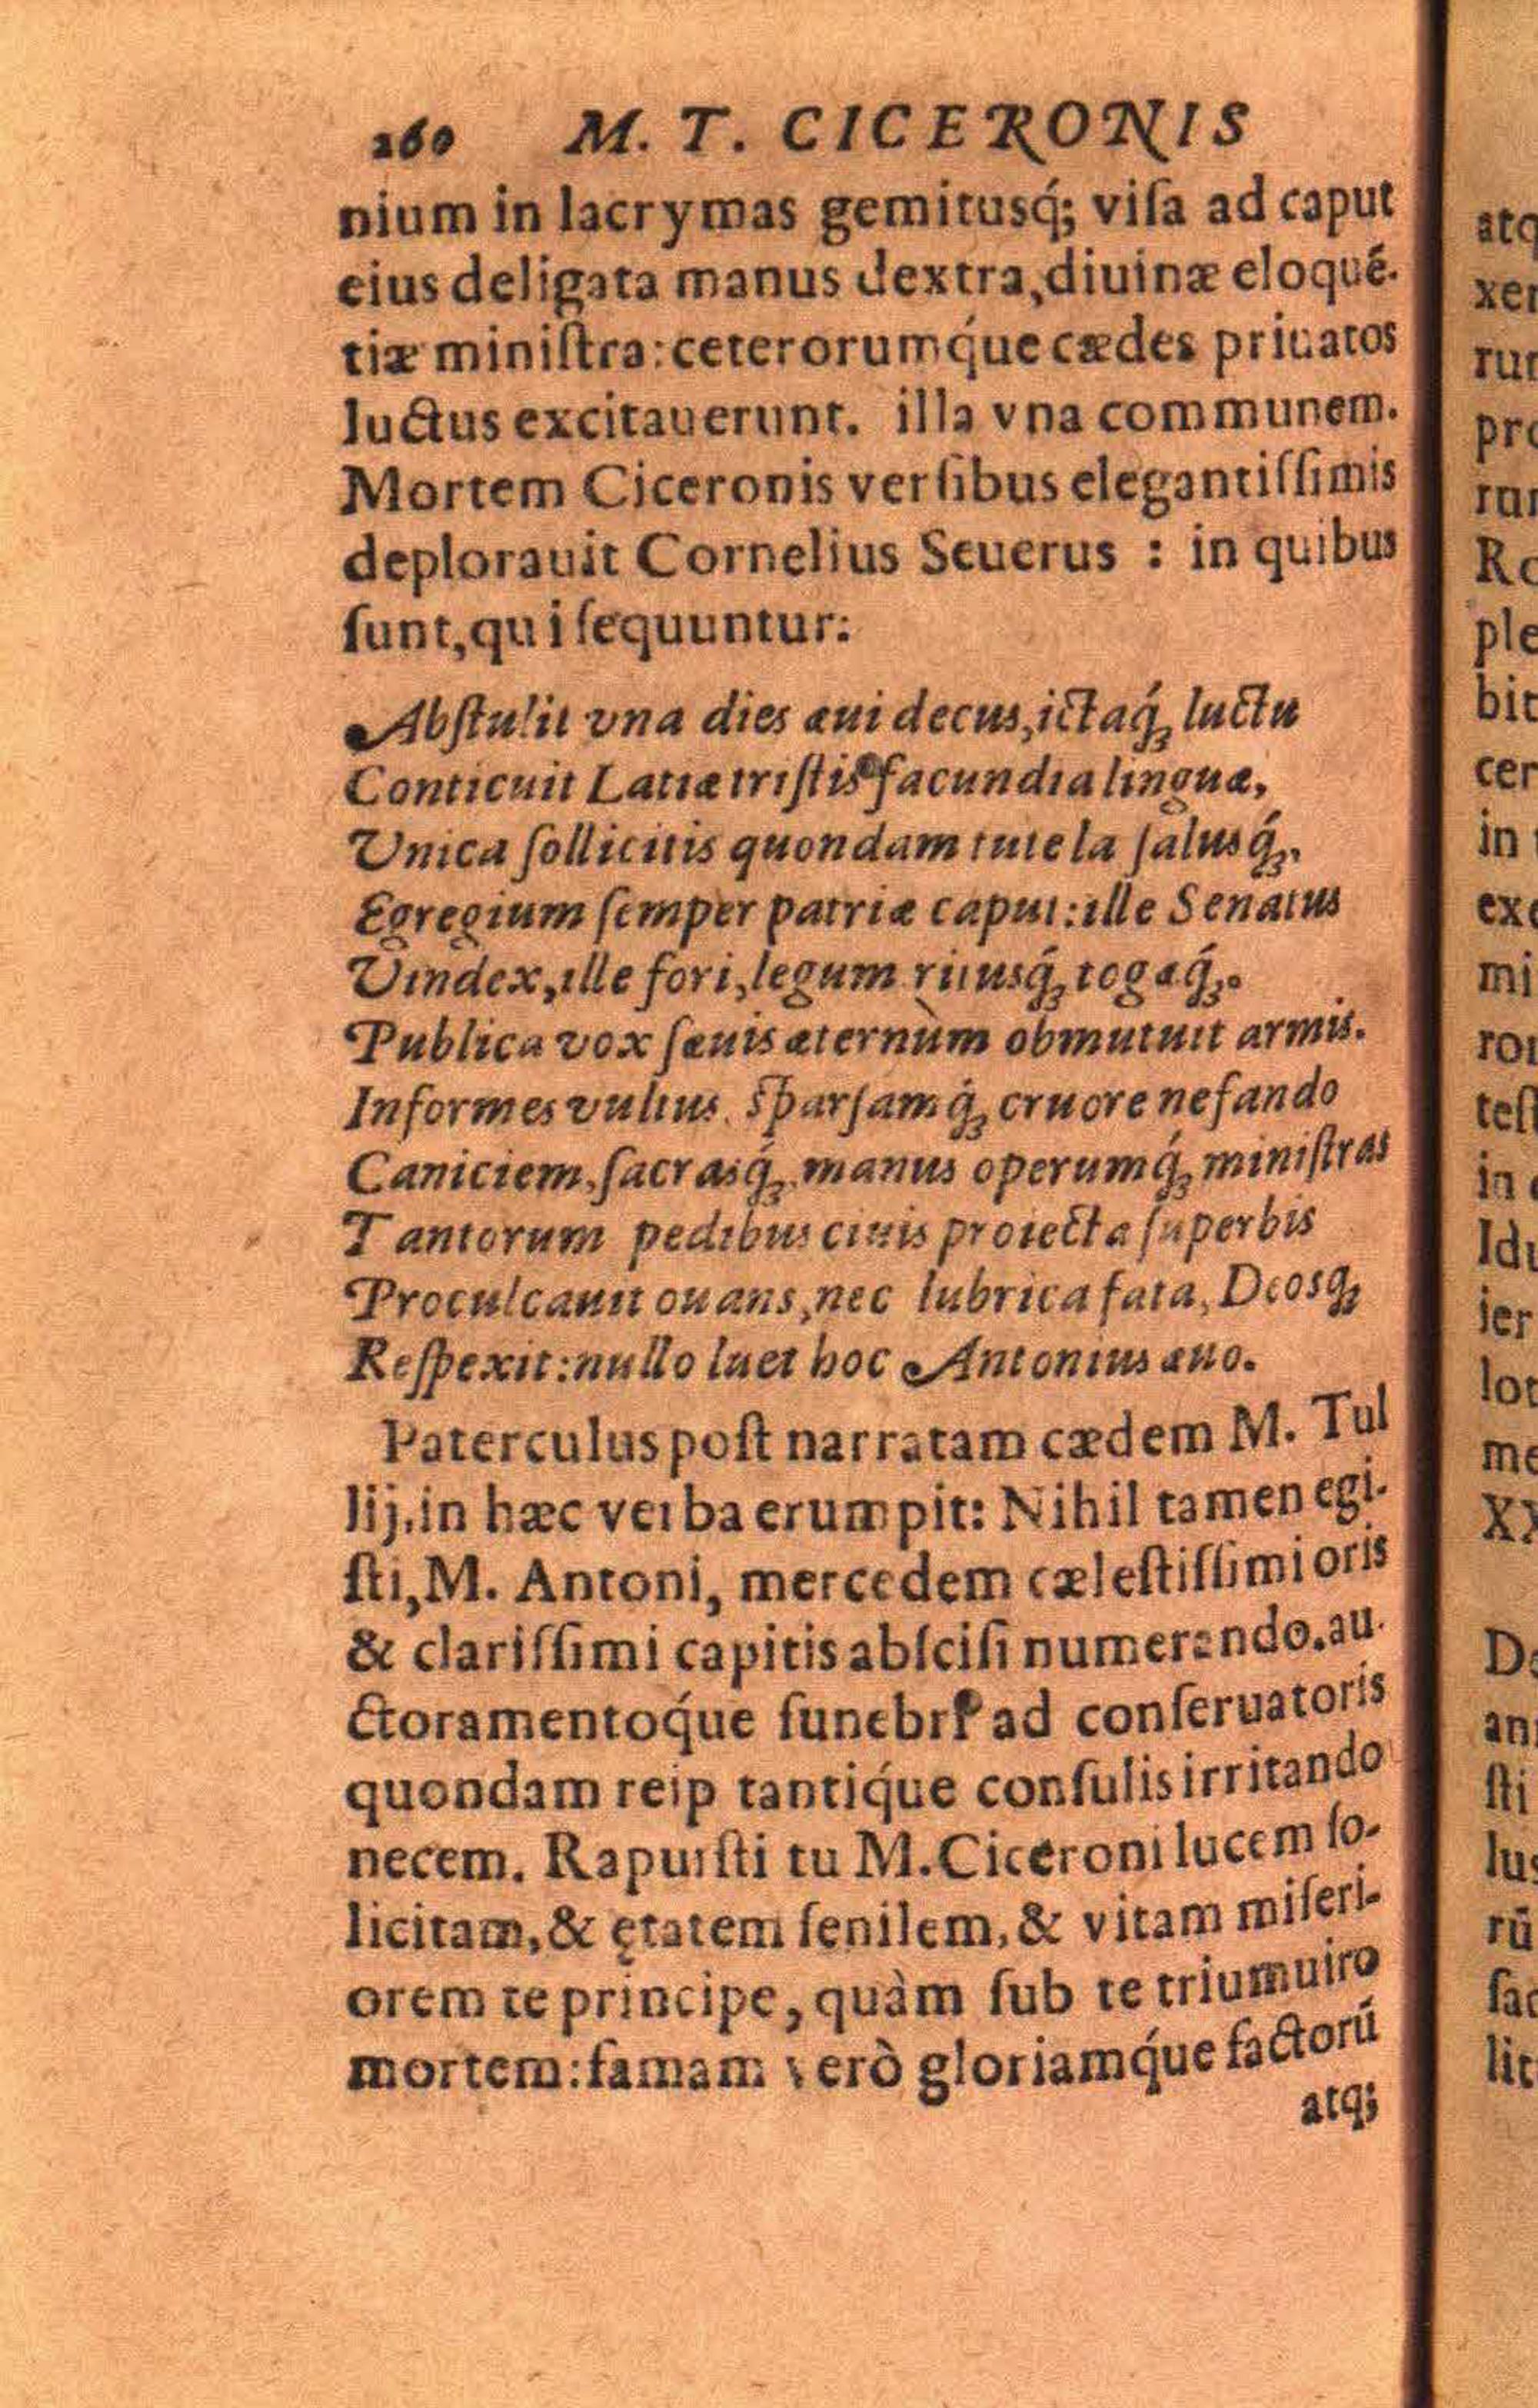 260 M. T. CICERONIS
nium in lacrymas gemitusq́; viſa ad caput
eius deligata manus dextra, diuinæ eloqué-
tiæ miniſtra: ceterorumq́ue cædes priuatos
luctus excitauerunt. illa vna communem.
Mortem Ciceronis verſibus elegantiſſimis
deplorauit Cornelius Seuerus : in quibus
ſunt, qui ſequuntur:
Abſtulit vna dies æui decus, ictaq́ꝫ luctu
Conticuit Latiæ triſtis facundia linguæ,
Unica ſollicitis quondam tutela ſalusq́ꝫ,
Egregium ſemper patriæ caput: ille Senatus
Vindex, ille fori, legum ritusq́ꝫ togæq́ꝫ.
Publica vox ſæuis æternùm obmutuit armis.
Informes vultus, ſparſamq́ꝫ cruore nefando
Caniciem, ſacrasq́ꝫ, manus operumq́ꝫ miniſtras
Tantorum pedibus ciuis proiecta ſuperbis
Proculcauit ouans, nec lubrica fata, Deosqꝫ
Reſpexit: nullo luet hoc Antonius æuo.
Paterculus poſt narratam cædem M. Tul
lij, in hæc verba erumpit: Nihil tamen egi-
ſti, M. Antoni, mercedem cæleſtiſſimi oris
& clariſſimi capitis abſciſi numerando. au-
ctoramentoq́ue funebri ad conſeruatoris
quondam reip tantiq́ue conſulis irritando
necem. Rapuiſti tu M. Ciceroni lucem ſo-
licitam, & ętatem ſenilem, & vitam miſeri-
orem te principe, quàm ſub te triumuiro
mortem: famam verò gloriamq́ue factorú
atq;